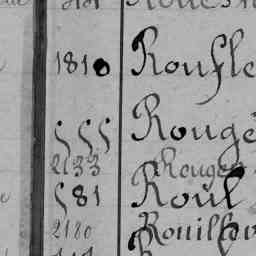 1810 Roufle
555 Rougé
2133 Rouge
581 Roul
2180 Rouilh